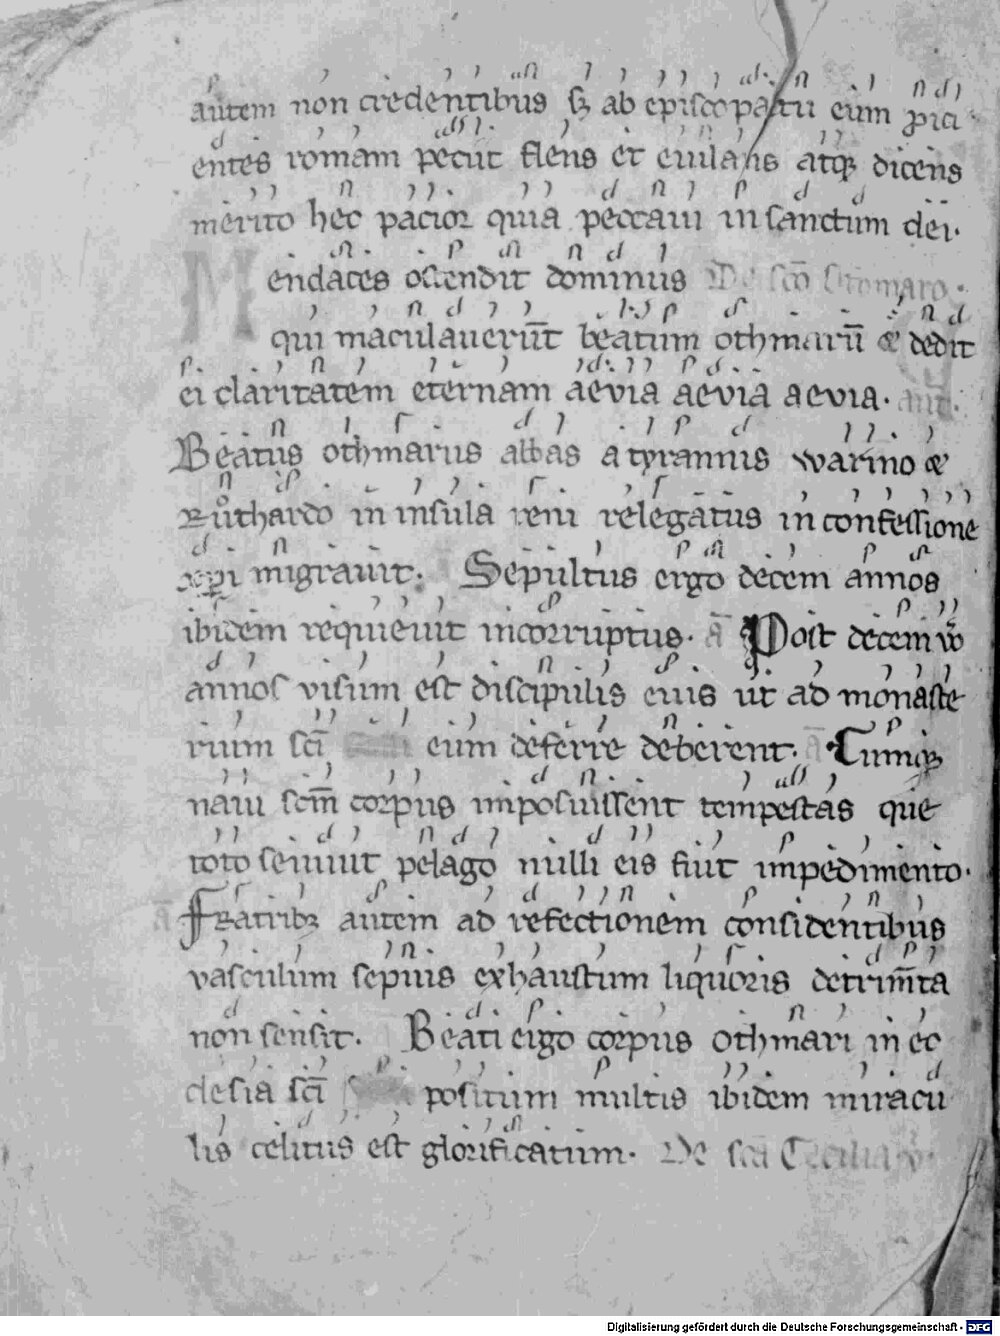 autem non credentibus sꝫ ab episcopatu eum ꝓici
entes romam petiit flens et eiulans atqꝫ dicens
merito hec pacior quia peccaui in sanctum dei.
Mendaces ostendit dominus De sc̄o Othmaro.
qui maculauerūt beatum othmarū & dedit
ei claritatem eternam aevia aevia aevia. ant.
Beatus othmarius abbas a tyrannis warino &
Ruͦthardo in insula reni relegatus in confessione
xp̄i migrauit. Sepultus ergo decem annos
ibidem requieuit incorruptus. A Post decem ṽo
annos visum est discipulis eius ut ad monaste
rium sc̄i eum deferre deberent. A Cumqꝫ
naui sc̄m corpus imposuissent tempestas que
toto seuiuit pelago nulli eis fiut impedimento.
A Fratribꝫ autem ad refectionem considentibus
vasculum sepius exhaustum liquoris detrim̄ta
non sensit. Beati ergo corpus othmari in ec
clesia sc̄i positum multis ibidem miracu
lis celitus est glorificatum. De sc̄a Cecilia v.
Digitalisierung gefördert durch die Deutsche Forschungsgemeinschaft - DFG